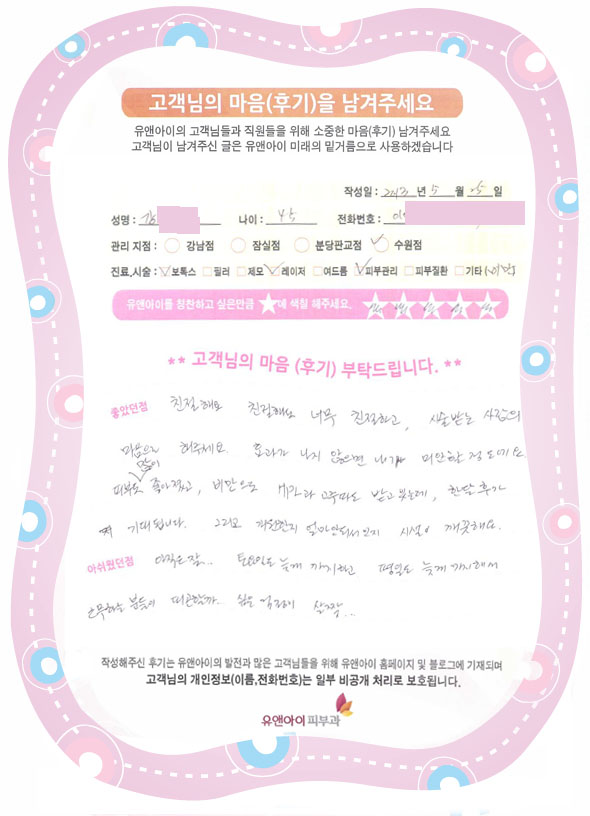 고객님의 마음(후기)을 남겨주세요
유앤아이의 고객님들과 직원들을 위해 소중한 마음(후기) 남겨주세요
고객님이 남겨주신 글은 유앤아이 미래의 밑거름으로 사용하겠습니다
작성일 : 2013 년 5 월 25 일
성명 : 김 나이 : 45 전화번호 : 01
관리 지점 : 강남점 잠실점 분당판교점 수원점
진료,시술 : 보톡스 필러 제모 레이저 여드름 피부관리 피부질환 기타 (비만)
유앤아이를 칭찬하고 싶은만큼 ★에 색칠 해주세요.
** 고객님의 마음 (후기) 부탁드립니다. **
좋았던점 친절해요 친절해요 너무 친절하고, 시술받는 사람의
마음으로 해주세요. 효과가 나지 않으면 내가 미안할 정도예요
많이
피부도 좋아졌고, 비만으로 HPL과 고주파도 받고 있는데, 한달 후가
기대됩니다. 그리고 개원한지 얼마 안되서인지 시설이 깨끗해요.
아쉬웠던점 아직은 잘.. 토요일도 늦게 까지하고 평일도 늦게 까지해서
근무하는 분들이 피곤할까.. 싶은 걱정이 살짝...
작성해주신 후기는 유앤아이의 발전과 많은 고객님들을 위해 유앤아이 홈페이지 및 블로그에 기재되며
고객님의 개인정보(이름,전화번호)는 일부 비공개 처리로 보호됩니다.
유앤아이피부과